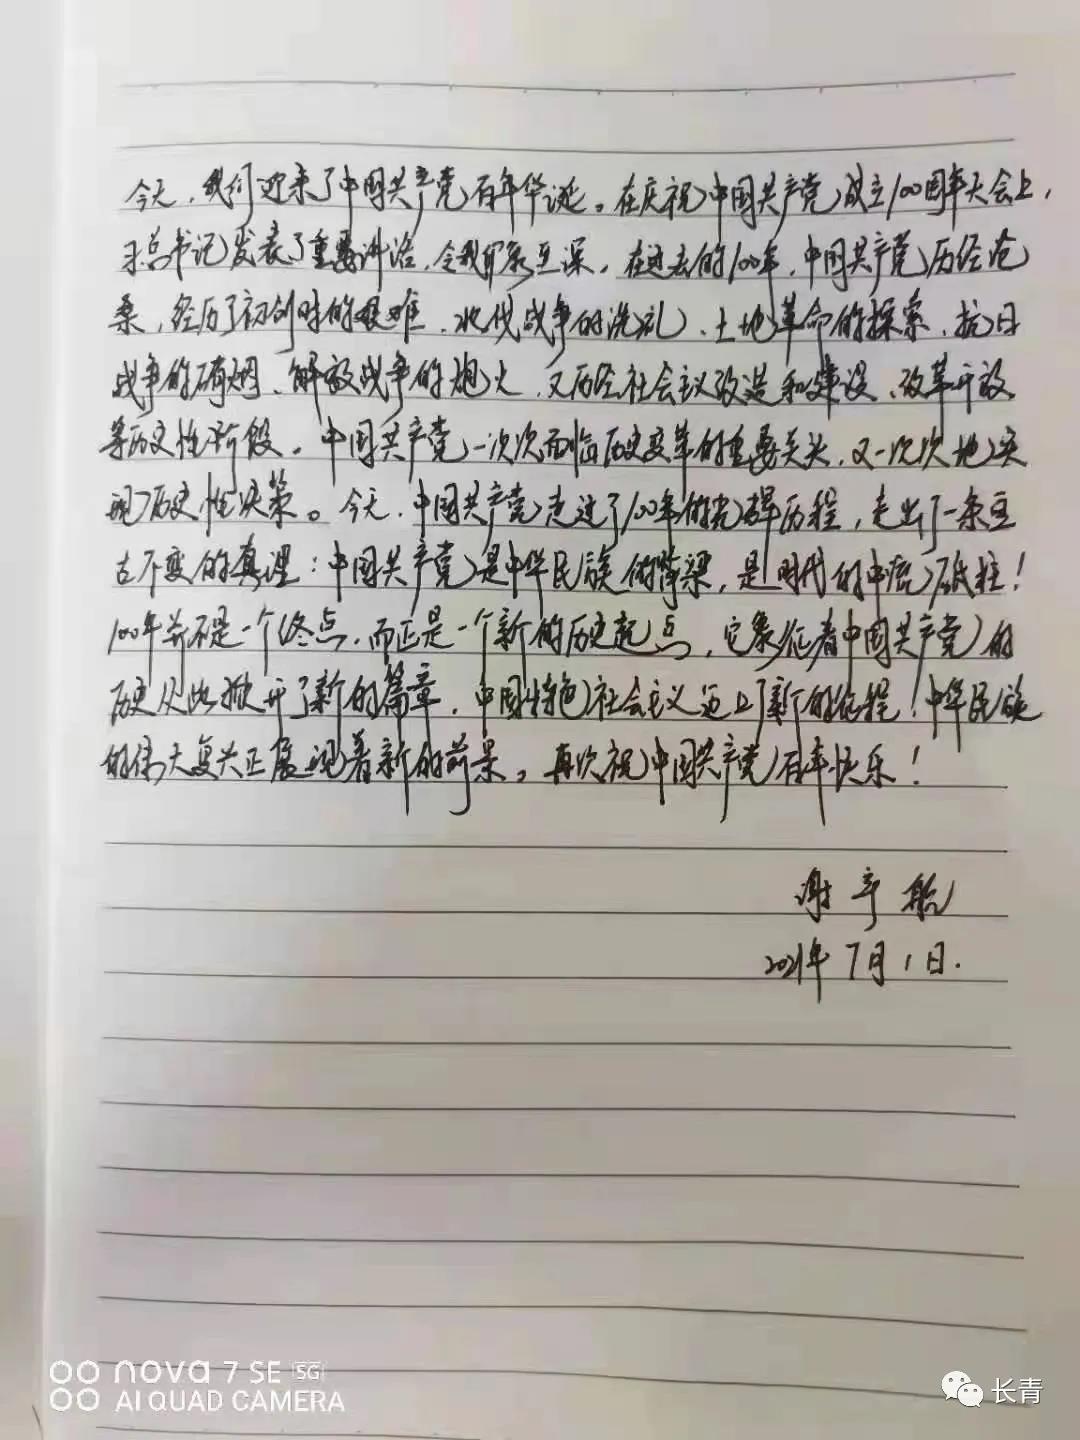 今天，我们迎来了中国共产党百年华诞。在庆祝中国共产党成立100周年大会上，
习总书记发表了重要讲话，令我感受至深。在过去的100年，中国共产党历经沧
桑，经历了初创时的艰难、北伐战争的洗礼、土地革命的探索、抗日
战争的硝烟、解放战争的炮火，又历经社会主义改造和建设、改革开放
等历史性阶段。中国共产党一次次面临历史变革的重要关头，又一次次地实
现历史性决策。今天，中国共产党走过了100年的光辉历程，走出了一条亘
古不变的真理：中国共产党是中华民族的脊梁，是时代的中流砥柱！
100年并不是一个终点，而正是一个新的历史起点，它象征着中国共产党的
历史从此掀开了新的篇章，中国特色社会主义迈上了新的征程！中华民族
的伟大复兴正展现着新的前景。再次祝中国共产党百年快乐！
谢 航
2021年7月1日.
nova 7 SE 5G
AI QUAD CAMERA
长青